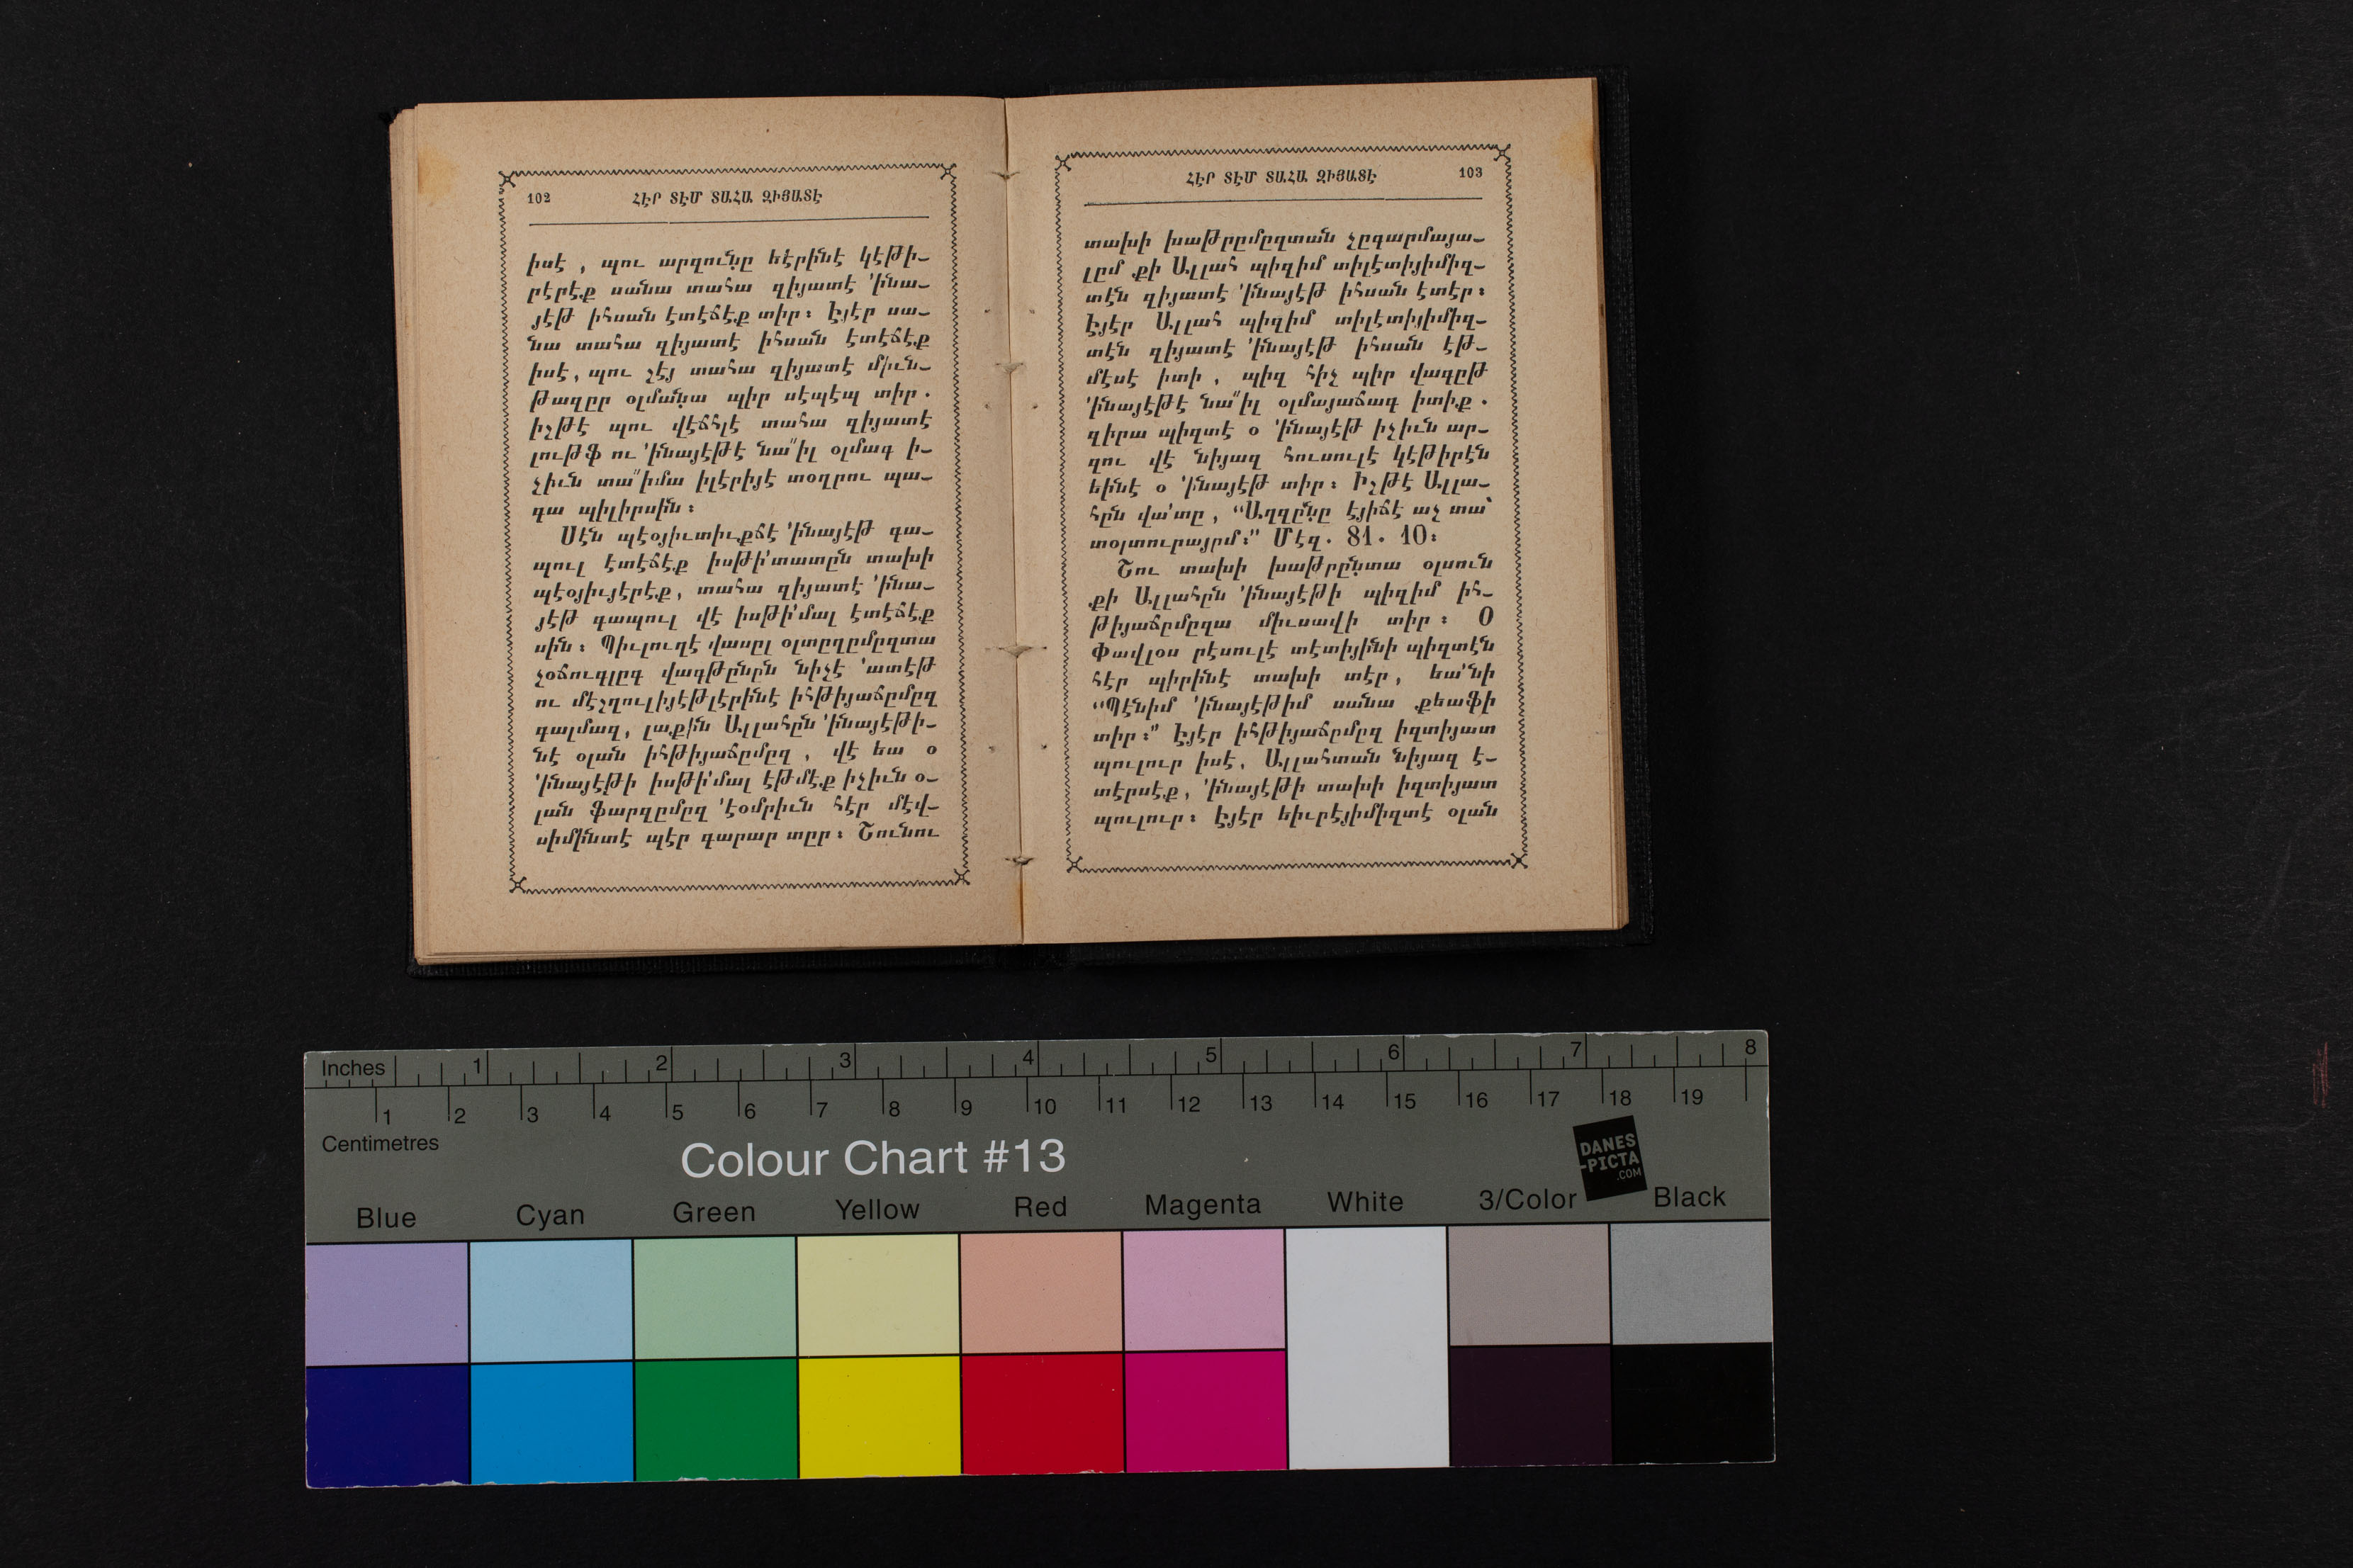 102 ՀԷՐ ՏԷՄ ՏԱՀԱ ԶԻՅԱՏԷ
իսէ , պու արզունը եէրինէ կէթի–
րէրէք սանա տահա զիյատէ ՛ինա–
յէթ իհսան էտէճէք տիր։ Էյէր սա–
նա տահա զիյատէ իհսան էտէճէք
իսէ, պու չէյ տահա զիյատէ միւն–
թազըր օլմանա պիր սէպէպ տիր.
իչթէ պու վէճհլէ տահա զիյատէ
լութֆ ու ՛ինայէթէ նա՛՛իլ օլմագ ի–
չիւն տա՛՛իմա իլէրիյէ տօղրու պա–
գա պիլիրսին։
Սէն պէօյիւտիւքճէ ՛ինայէթ գա–
պուլ էտէճէք իսթի՛տատըն տախի
պէօյիւյէրէք, տահա զիյատէ ՛ինա–
յէթ գապուլ վէ իսթի՛մալ էտէճէք
սին։ Պիւլուղէ վասըլ օլտըղըմըզտա
չօճուգլըգ վագթընըն նիչէ ՛ատէթ
ու մէշղուլիյէթլէրինէ իհթիյաճըմըզ
գալմազ, լաքին Ալլահըն ՛ինայէթի–
նէ օլան իհթիյաճըմըզ , վէ եա օ
՛ինայէթի իսթի՛մալ էթմէք իչիւն օ–
լան ֆարզըմըզ ՛էօմրիւն հէր մէվ–
սիմինտէ պէր գարար տըր։ Շունու
ՀԷՐ ՏԷՄ ՏԱՀԱ ԶԻՅԱՏԷ 103
տախի խաթրըմըզտան չըգարմայա–
լըմ քի Ալլահ պիզիմ տիլէտիյիմիզ–
տէն զիյատէ ՛ինայէթ իհսան էտէր։
Էյէր Ալլահ պիզիմ տիլէտիյիմիզ–
տէն զիյատէ ՛ինայէթ իհսան էթ–
մէսէ իտի , պիզ հիչ պիր վագըթ
՛ինայէթէ նա՛՛իլ օլմայաճագ իտիք .
զիրա պիզտէ օ ՛ինայէթ իչիւն ար–
զու վէ նիյազ հուսուլէ կէթիրէն
եինէ օ ՛ինայէթ տիր։ Իչթէ Ալլա–
հըն վա՛տը , “Աղզընը էյիճէ աչ տա՝
տօլտուրայըմ։” Մէզ. 81. 10։
Շու տախի խաթրընտա օլսուն
քի Ալլահըն ՛ինայէթի պիզիմ իհ–
թիյաճըմըզա միւսավի տիր։ Օ
Փավլօս րէսուլէ տէտիյինի պիզտէն
հէր պիրինէ տախի տէր, եա՛նի
“Պէնիմ ՛ինայէթիմ սանա քեաֆի
տիր։” Էյէր իհթիյաճըմըզ իզտիյատ
պուլուր իսէ, Ալլահտան նիյազ է–
տէրսէք, ՛ինայէթի տախի իզտիյատ
պուլուր։ Էյէր եիւրէյիմիզտէ օլան
Inches 1 2 3 4 5 6 7 8
1 2 3 4 5 6 7 8 9 10 11 12 13 14 15 16 17 18 19
Centimetres
Colour Chart #13
DANES
-PICTA
.COM
Blue Cyan Green Yellow Red Magenta White 3/Color Black